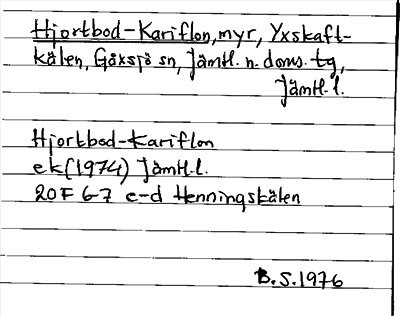 Hjortbod-Kariflon, myr, Yxskaft-
kälen, Gåxsjö sn, Jämtl. n. doms. tg,
Jämtl. l.
Hjortbod-Kariflon
ek (1974) Jämtl. l.
20F 6-7 c-d Henningskälen
B.S. 1976